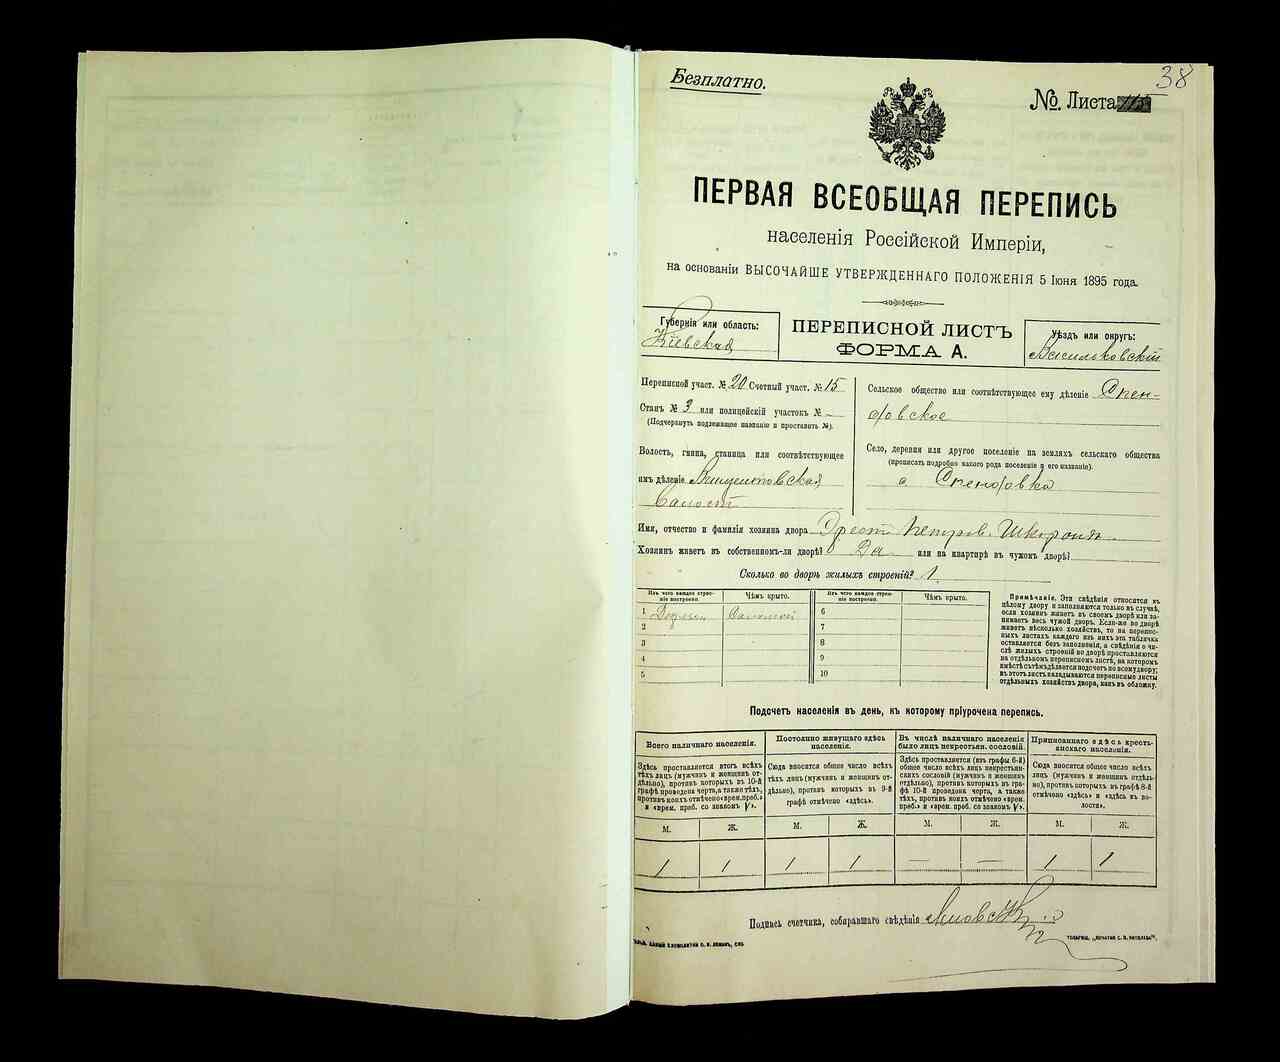 38
Безплатно.
№. Листа
ПЕРВАЯ ВСЕОБЩАЯ ПЕРЕПИСЬ
населенія Россійской Имперіи,
на основаніи ВЫСОЧАЙШЕ УТВЕРЖДЕННАГО ПОЛОЖЕНІЯ 5 Іюня 1895 года.
Губернія или область:
Кіевская
ПЕРЕПИСНОЙ ЛИСТЪ
ФОРМА А.
Уѣздъ или округъ:
Васильковскій
Переписной участ. № 20 Счетный участ. № 15
Станъ № 3 или полицейскій участокъ № –
(Подчеркнуть подлежащее названіе и проставить №).
Волость, гмина, станица или соотвѣтствующее
имъ дѣленіе
Сельское общество или соотвѣтствующее ему дѣленіе
Село, деревня или другое поселеніе на земляхъ сельскаго общества
(прописать подробно какого рода поселеніе и его названіе).
Имя, отчество и фамилія хозяина двора Орестъ Петров.
Хозяинъ живетъ въ собственномъ-ли дворѣ? Да или на квартирѣ въ чужомъ дворѣ?
Сколько во дворѣ жилыхъ строеній? 1.
Изъ чего каждое строе-
ніе построено.
Чѣмъ крыто.
Изъ чего каждое строе-
ніе построено.
Чѣмъ крыто.
1 Соломой
2
3
4
5
6
7
8
9
10
Примѣчаніе. Эти свѣдѣнія относятся къ
цѣлому двору и заполняются только въ случаѣ,
если хозяинъ живетъ въ своемъ дворѣ или за-
нимаетъ весь чужой дворъ. Если-же во дворѣ
живетъ нѣсколько хозяйствъ, то на перепис-
ныхъ листахъ каждаго изъ нихъ эта табличка
оставляется безъ заполненія, а свѣдѣнія о чи-
слѣ жилыхъ строеній во дворѣ проставляются
на отдѣльномъ переписномъ листѣ, на которомъ
вмѣстѣ съ тѣмъ дѣлается подсчетъ по всему двору;
въ этотъ листъ вкладываются переписные листы
отдѣльныхъ хозяйствъ двора, какъ въ обложку.
Подсчетъ населенія въ день, къ которому пріурочена перепись.
Всего наличнаго населенія.
Здѣсь проставляется итогъ всѣхъ
тѣхъ лицъ (мужчинъ и женщинъ от-
дѣльно), противъ которыхъ въ 10-й
графѣ проведена черта, а также тѣхъ,
противъ коихъ отмѣчено «врем. преб.»
и «врем. преб. со знакомъ V».
Постоянно живущаго здѣсь
населенія.
Сюда вносится общее число всѣхъ
тѣхъ лицъ (мужчинъ и женщинъ от-
дѣльно), противъ которыхъ въ 9-й
графѣ отмѣчено «здѣсь».
Въ числѣ наличнаго населенія
было лицъ некрестьян. сословій.
Здѣсь проставляется (изъ графы 6-й)
общее число всѣхъ лицъ некрестьян-
скихъ сословій (мужчинъ и женщинъ
отдѣльно), противъ которыхъ въ гра-
фѣ 10-й проведена черта, а также
тѣхъ, противъ коихъ отмѣчено «врем.
преб.» и «врем. преб. со знакомъ V».
Приписаннаго здѣсь кресть-
янскаго населенія.
Сюда вносится общее число всѣхъ
лицъ (мужчинъ и женщинъ отдѣль-
но), противъ которыхъ въ графѣ 8-й
отмѣчено «здѣсь» и «здѣсь въ во-
лости».
М. Ж. М. Ж. М. Ж. М. Ж.
1 1 1 1 – – 1 1
Подпись счетчика, собиравшаго свѣдѣнія